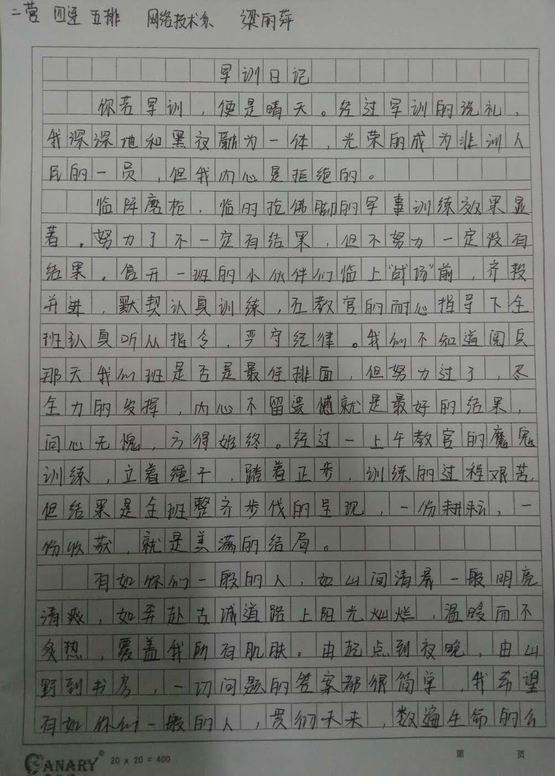 二营 四连 五排 网络技术系 梁丽萍
军训日记
你若军训，便是晴天。经过军训的洗礼，
我深深地和黑夜融为一体，光荣的成为非训人
民的一员，但我内心是拒绝的。
临阵磨枪，临时抱佛脚的军事训练效果显
著。努力了不一定有结果，但不努力一定没有
结果。信开一班的小伙伴们临上“战场”前，齐投
并进，默契认真训练，在教官的耐心指导下全
班认真听从指令，严守纪律。我们不知道阅兵
那天我们班是否是最佳排面，但努力过了，尽
全力的发挥，内心不留遗憾就是最好的结果，
问心无愧，方得始终。经过一上午教官的魔鬼
训练，立着绳子，踏着正步，训练的过程艰苦，
但结果是全班整齐步伐的呈现，一份耕耘，一
份收获，就是美满的结局。
有如你们一般的人，如山间清晨一般明亮
清爽，如奔赴古城道路上阳光灿烂，温暖而不
炙热，覆盖我所有肌肤。由起点到夜晚，由山
野到书房，一切问题的答案都很简单，我希望
有如你们一般的人，贯彻未来，数遍生命的公
CANARY® 20 x 20 = 400 第 页